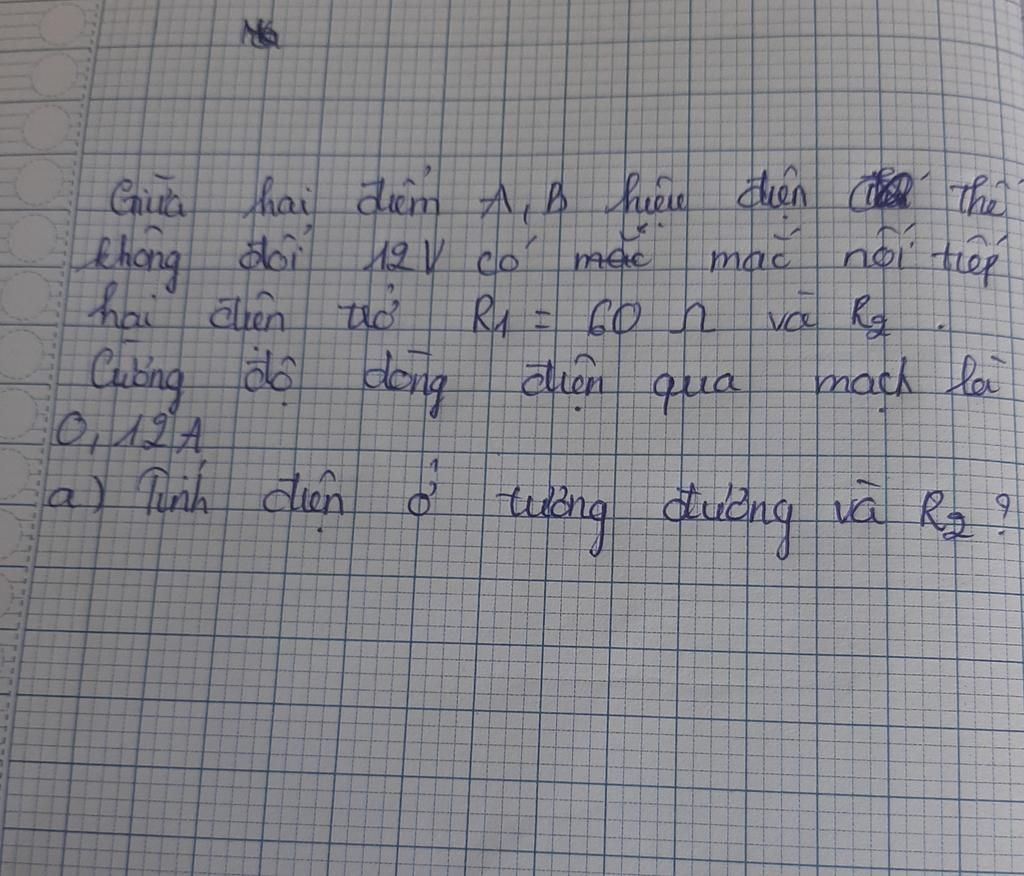 Giữa hai điểm A, B hiệu điện thế
không đổi 12V có mắc mắc nối tiếp
hai điện trở R1 = 60 Ω và R2.
Cường độ dòng điện qua mạch là
0,12A
a) Tính điện ở tương đương và R2?